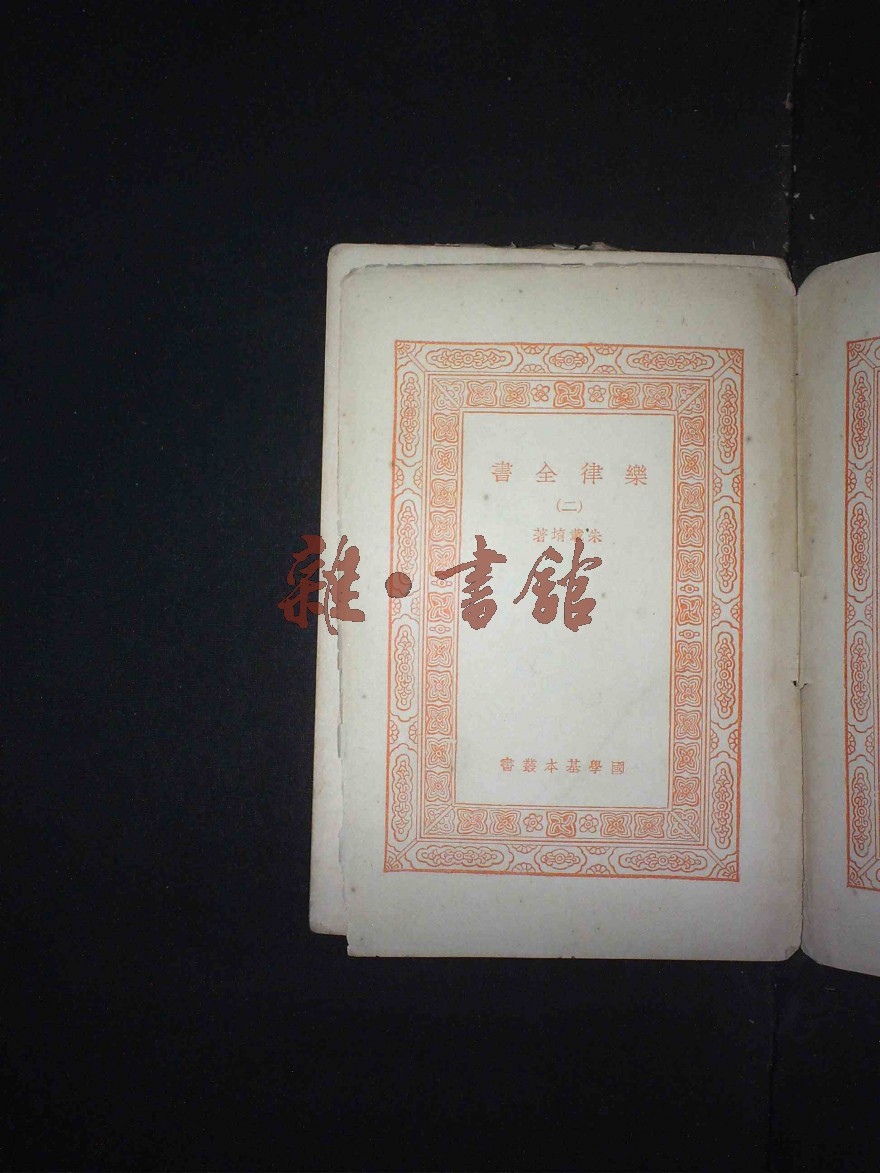 樂律全書
(二)
朱載堉著
雜·書館
國學基本叢書